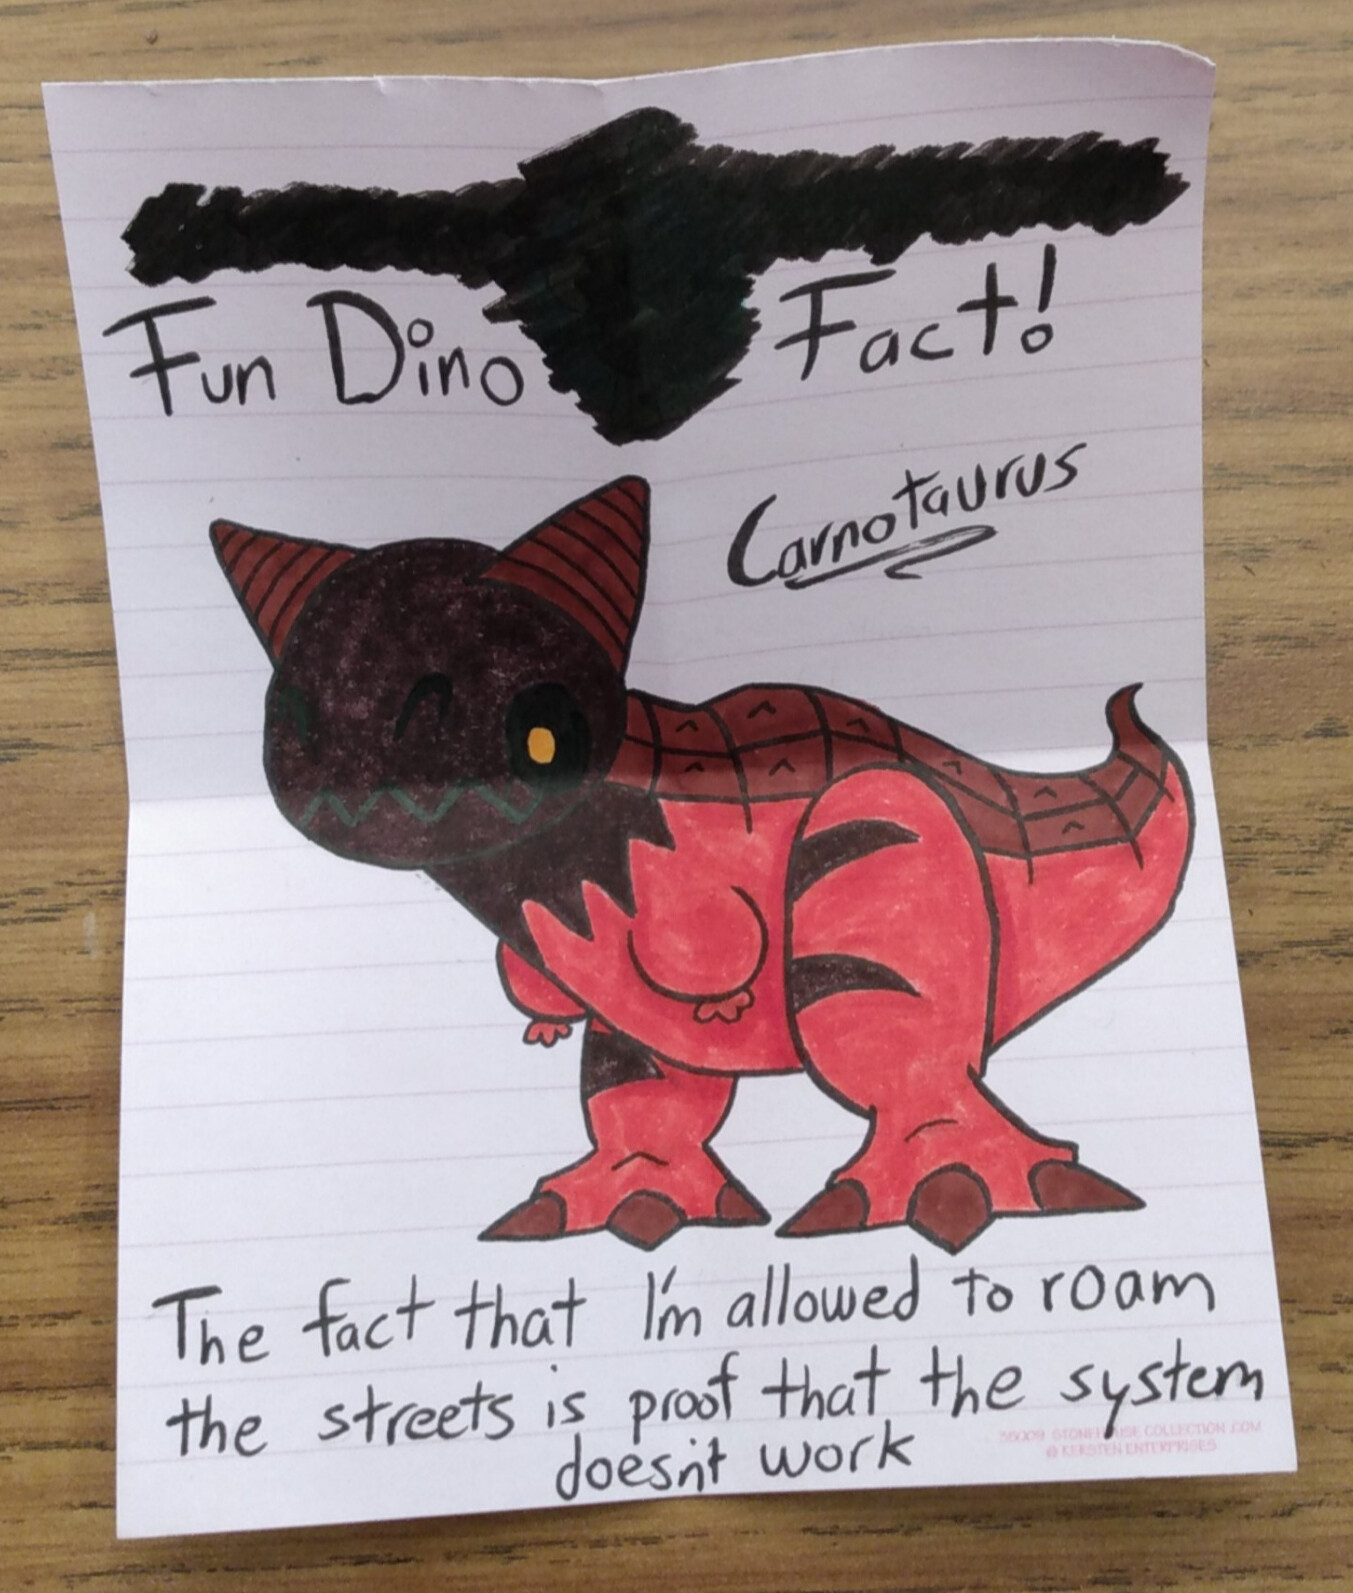 Fun Dino Fact!
Carnotaurus
The fact that I'm allowed to roam
the streets is proof that the system
doesn't work
COLLECTION.COM
@ KERSTEN ENTERPRISES